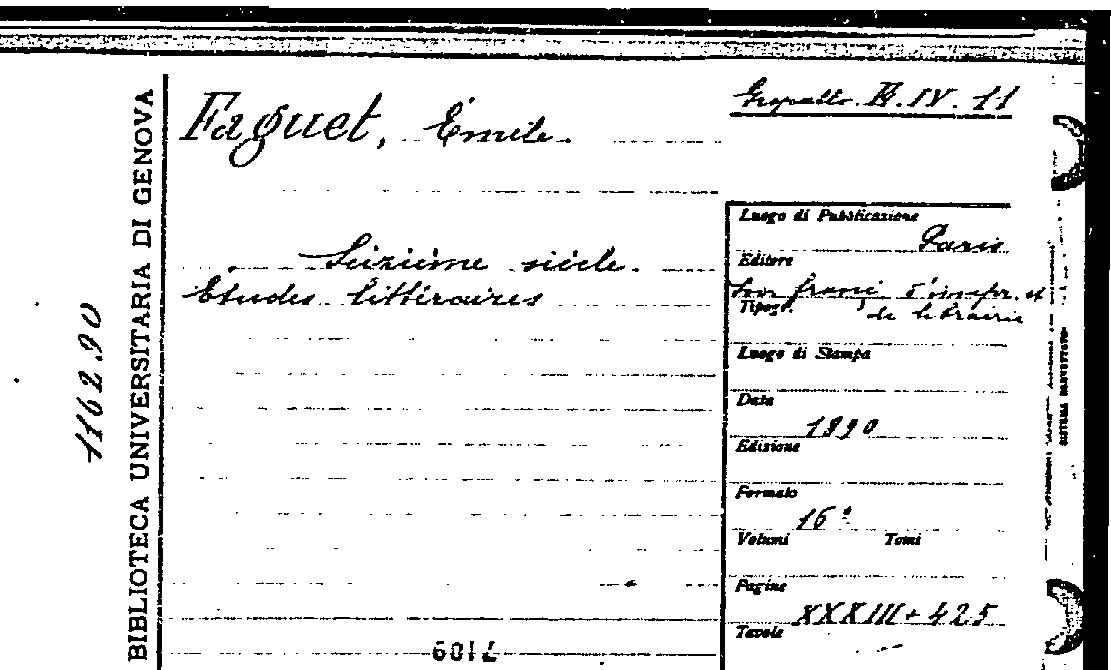 BIBLIOTECA UNIVERSITARIA DI GENOVA
1162.90
Faguet, Emile.
Seizième siècle.
Etudes littéraires
IV. 11
Luogo di Pubblicazione
Paris
Editore
franç d'impr. et
de librairie
Tipogr.
Luogo di Stampa
Data
1890
Edizione
Formato
16°
Volumi Tomi
Pagine
XXXIII+425
Tavole